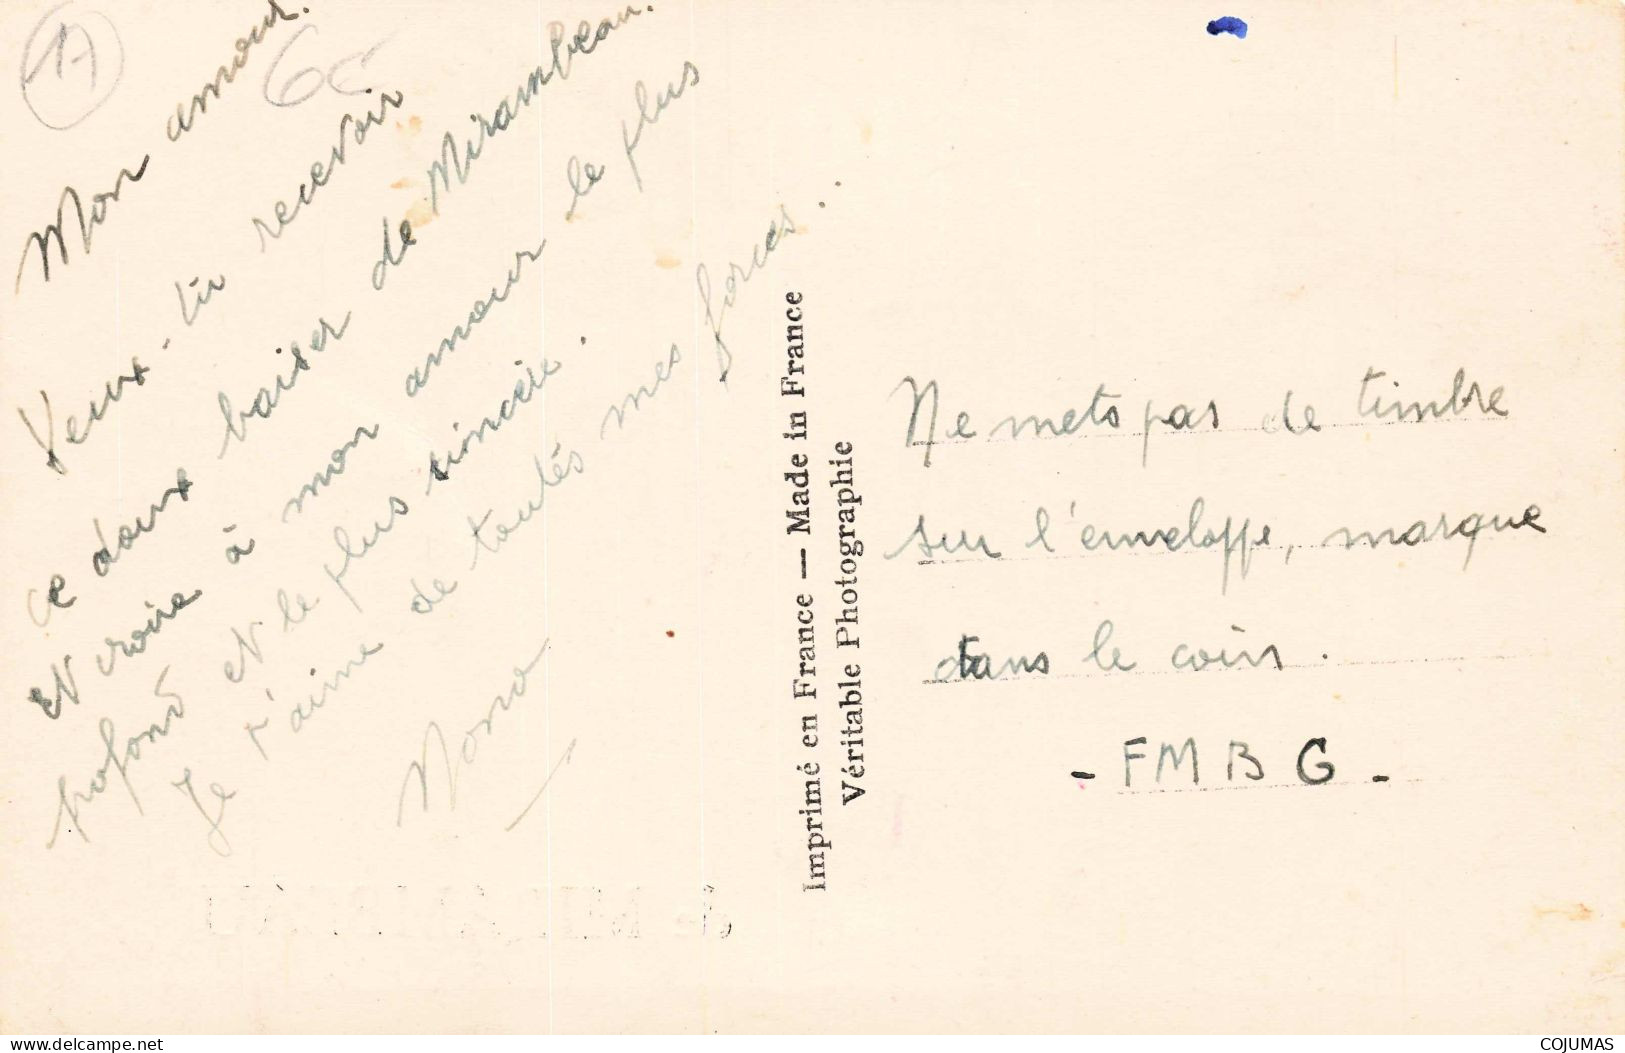 17
6€
Mon amour.
Veux-tu recevoir
ce doux baiser de Mirambeau.
Et croire à mon amour le plus
profond et le plus sincère.
Je t'aime de toutes mes forces.
Nono
Imprimé en France — Made in France
Véritable Photographie
Ne mets pas de timbre
sur l'enveloppe, marque
dans le coin.
- FMBG -
de MIRAMBEAU
www.delcampe.net
COJUMAS